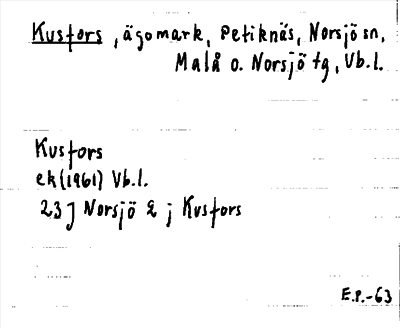 Kusfors, ägomark, Petiknäs, Norsjö sn,
Malå o. Norsjö tg, Vb.l.
Kusfors
ek(1961) Vb.l.
23J Norsjö 2 j Kusfors
E.P.-63